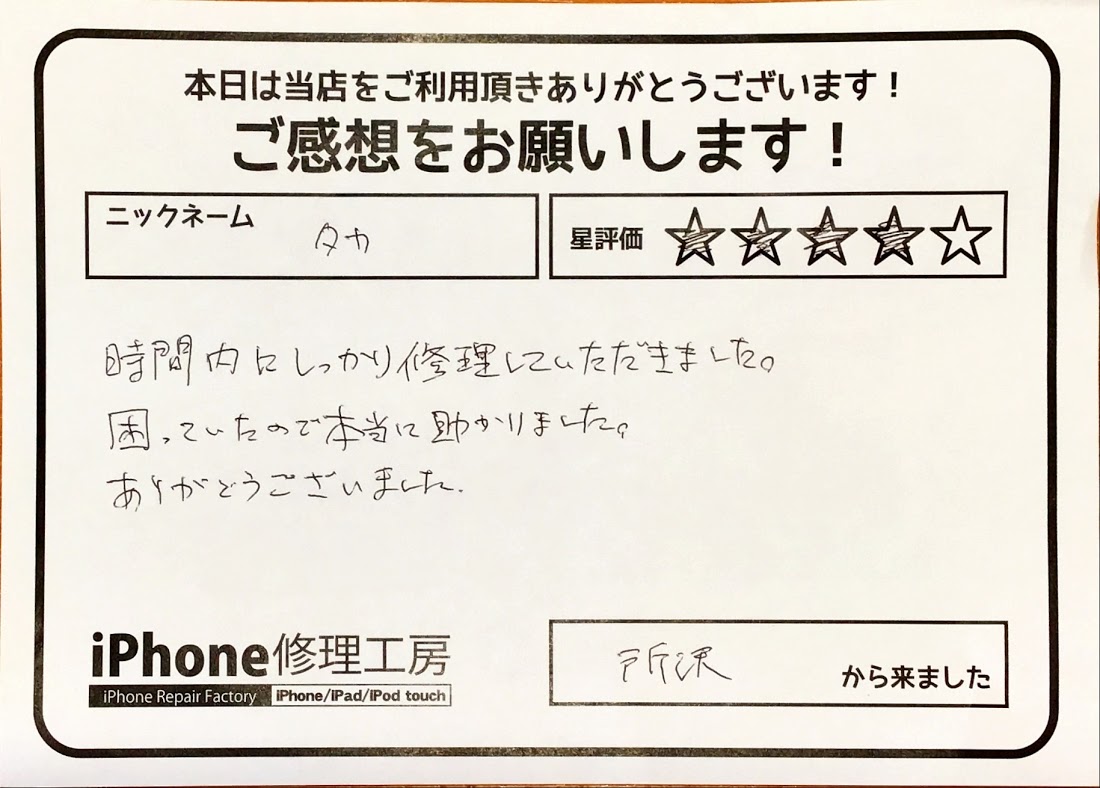 本日は当店をご利用頂きありがとうございます！
ご感想をお願いします！
ニックネーム タカ
星評価
時間内にしっかり修理していただきました。
困っていたので本当に助かりました。
ありがとうございました.
iPhone修理工房
iPhone Repair Factory iPhone/iPad/iPod touch
所沢 から来ました